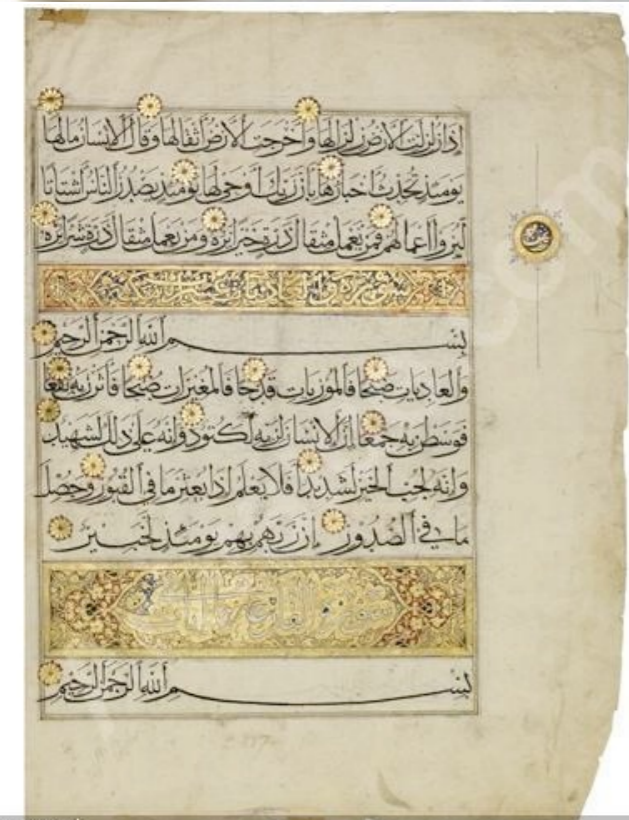 إذا زلزلت الأرض زلزالها وأخرجت الأرض أثقالها وقال الإنسان ما لها
يومئذ تحدث أخبارها بأن ربك أوحى لها يومئذ يصدر الناس أشتاتا
ليروا أعمالهم فمن يعمل مثقال ذرة خيرا يره ومن يعمل مثقال ذرة شرا يره
بسم الله الرحمن الرحيم
والعاديات ضبحا فالموريات قدحا فالمغيرات صبحا فأثرن به نقعا
فوسطن به جمعا إن الإنسان لربه لكنود وإنه على ذلك لشهيد
وإنه لحب الخير لشديد أفلا يعلم إذا بعثر ما في القبور وحصل
ما في الصدور إن ربهم بهم يومئذ لخبير
سورة القارعة
بسم الله الرحمن الرحيم